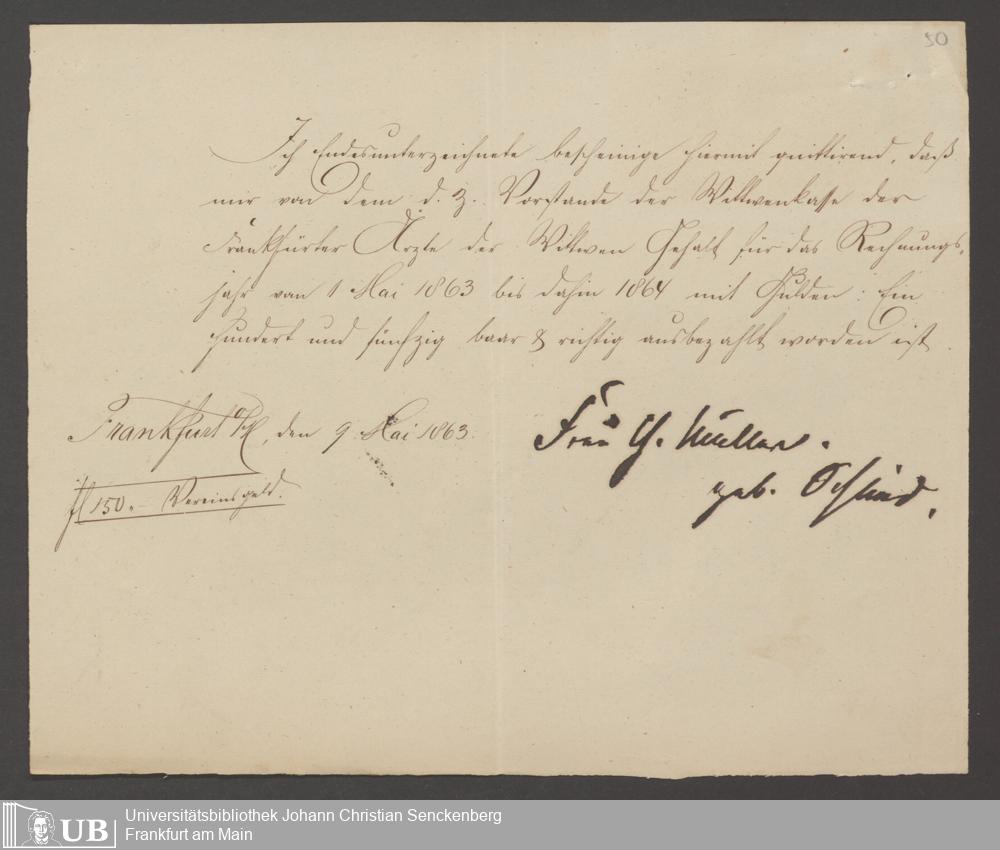 50
Ich Endesunterzeichnete bescheinige hiermit quittirend, daß
mir von dem d. Z. Vorstande der Wittwenkasse der
Frankfurter Ärzte der Wittwen Gehalt für das Rechnungs-
jahr von 1 Mai 1863 bis dahin 1864 mit Gulden: Ein
hundert und fünfzig baar & richtig ausbezahlt worden ist.
Frankfurt a/M, den 9 Mai 1863.
Frau Müller.
fl 150.- Vereinsgeld.
geb. Schmid.
UB
Universitätsbibliothek Johann Christian Senckenberg
Frankfurt am Main